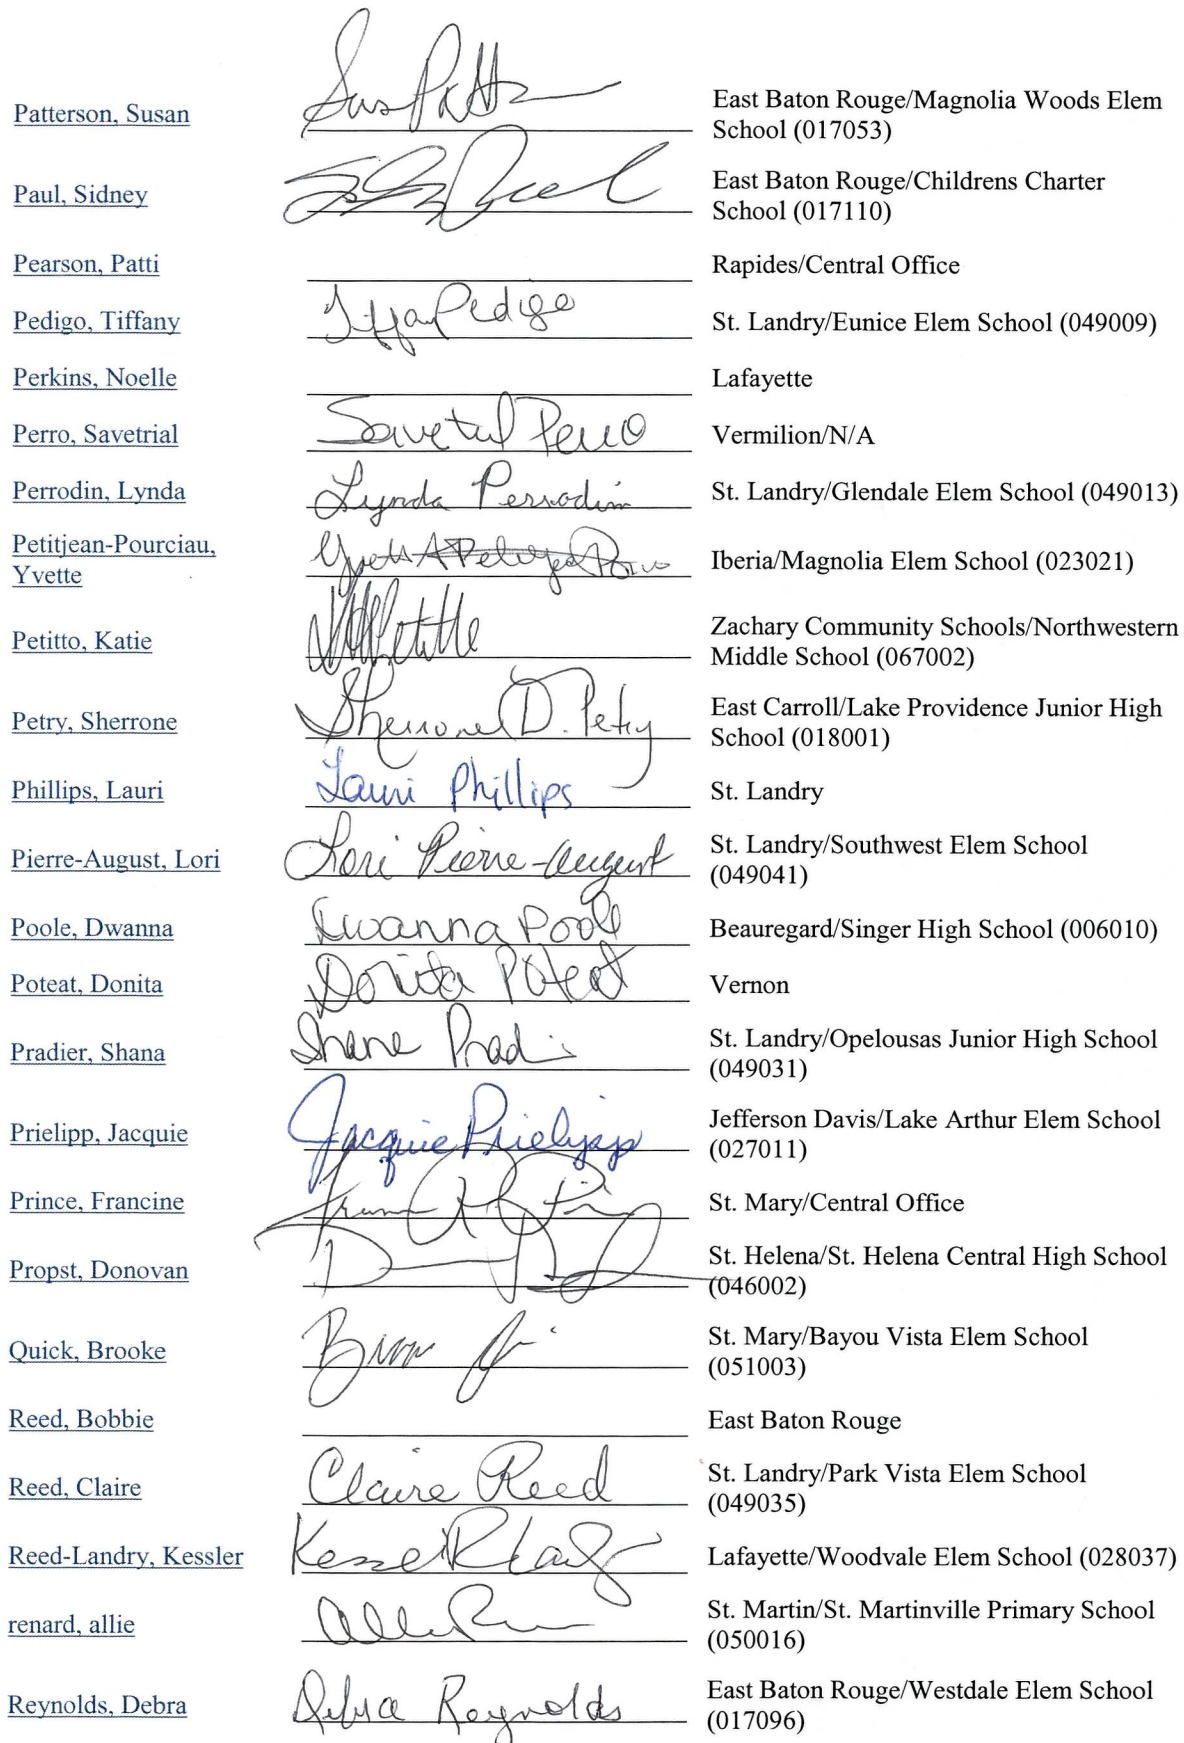 Patterson, Susan Sus Patt East Baton Rouge/Magnolia Woods Elem
School (017053)
Paul, Sidney East Baton Rouge/Childrens Charter
School (017110)
Pearson, Patti Rapides/Central Office
Pedigo, Tiffany Tiffany Pedigo St. Landry/Eunice Elem School (049009)
Perkins, Noelle Lafayette
Perro, Savetrial Savetrial Perro Vermilion/N/A
Perrodin, Lynda Lynda Perrodin St. Landry/Glendale Elem School (049013)
Petitjean-Pourciau,
Yvette Iberia/Magnolia Elem School (023021)
Petitto, Katie Zachary Community Schools/Northwestern
Middle School (067002)
Petry, Sherrone Sherrone D. Petry East Carroll/Lake Providence Junior High
School (018001)
Phillips, Lauri Lauri Phillips St. Landry
Pierre-August, Lori Lori Pierre-August St. Landry/Southwest Elem School
(049041)
Poole, Dwanna Dwanna Poole Beauregard/Singer High School (006010)
Poteat, Donita Donita Poteat Vernon
Pradier, Shana Shana Pradi St. Landry/Opelousas Junior High School
(049031)
Prielipp, Jacquie Jacquie Prielipp Jefferson Davis/Lake Arthur Elem School
(027011)
Prince, Francine St. Mary/Central Office
Propst, Donovan St. Helena/St. Helena Central High School
(046002)
Quick, Brooke St. Mary/Bayou Vista Elem School
(051003)
Reed, Bobbie East Baton Rouge
Reed, Claire Claire Reed St. Landry/Park Vista Elem School
(049035)
Reed-Landry, Kessler Lafayette/Woodvale Elem School (028037)
renard, allie St. Martin/St. Martinville Primary School
(050016)
Reynolds, Debra Debra Reynolds East Baton Rouge/Westdale Elem School
(017096)